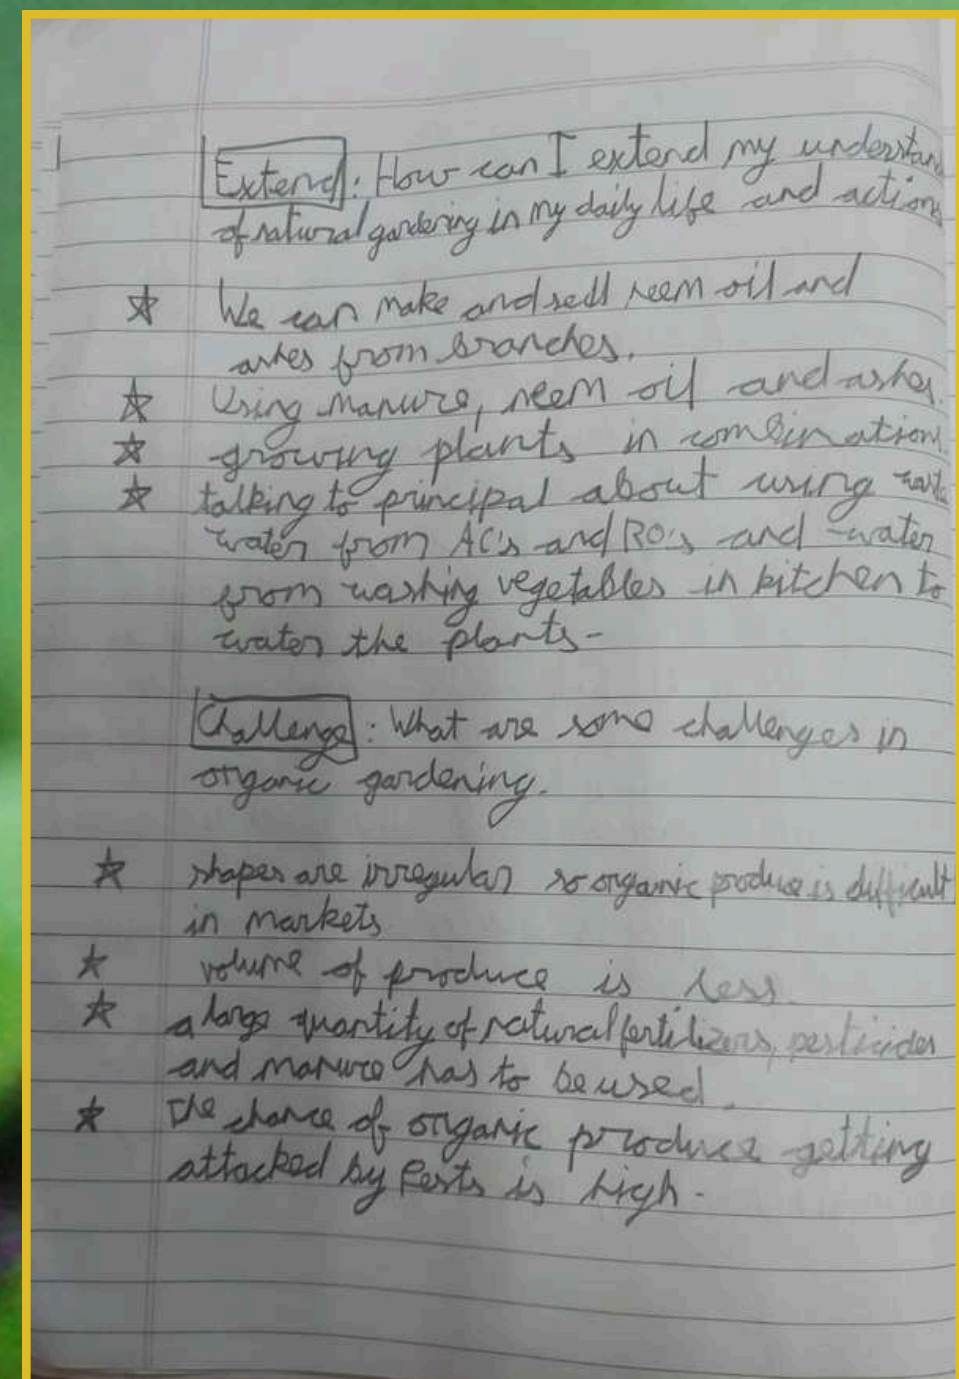 Extend: How can I extend my understan
of natural gardening in my daily life and actions
We can make and sell neem oil and
ashes from branches.
Using manure, neem oil and ashes.
growing plants in combinations
talking to principal about using waste
water from AC's and RO's and water
from washing vegetables in kitchen to
water the plants-
Challenge: What are some challenges in
organic gardening.
shapes are irregular so organic produce is difficult
in markets
volume of produce is less.
a large quantity of natural fertilizers, pesticides
and manure has to be used.
The chance of organic produce getting
attacked by Pests is high.